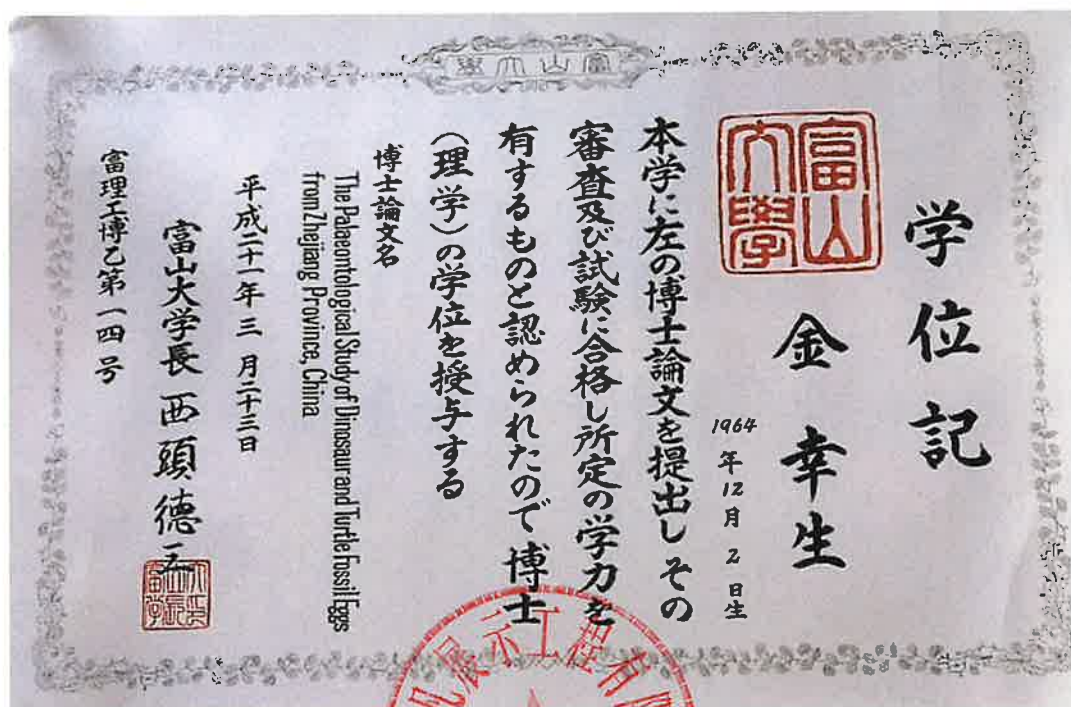 富山大學
学位記
富山大學
金幸生
1964年12月2日生
本学に左の博士論文を提出し その
審査及び試験に合格し所定の学力を
有するものと認められたので 博士
(理学)の学位を授与する
博士論文名
The Palaeontological Study of Dinosaur and Turtle Fossil Eggs
from Zhejiang Province, China
平成二十一年三月二十三日
富山大学長 西頭德三
富理工博乙第一四号
展示工程有限